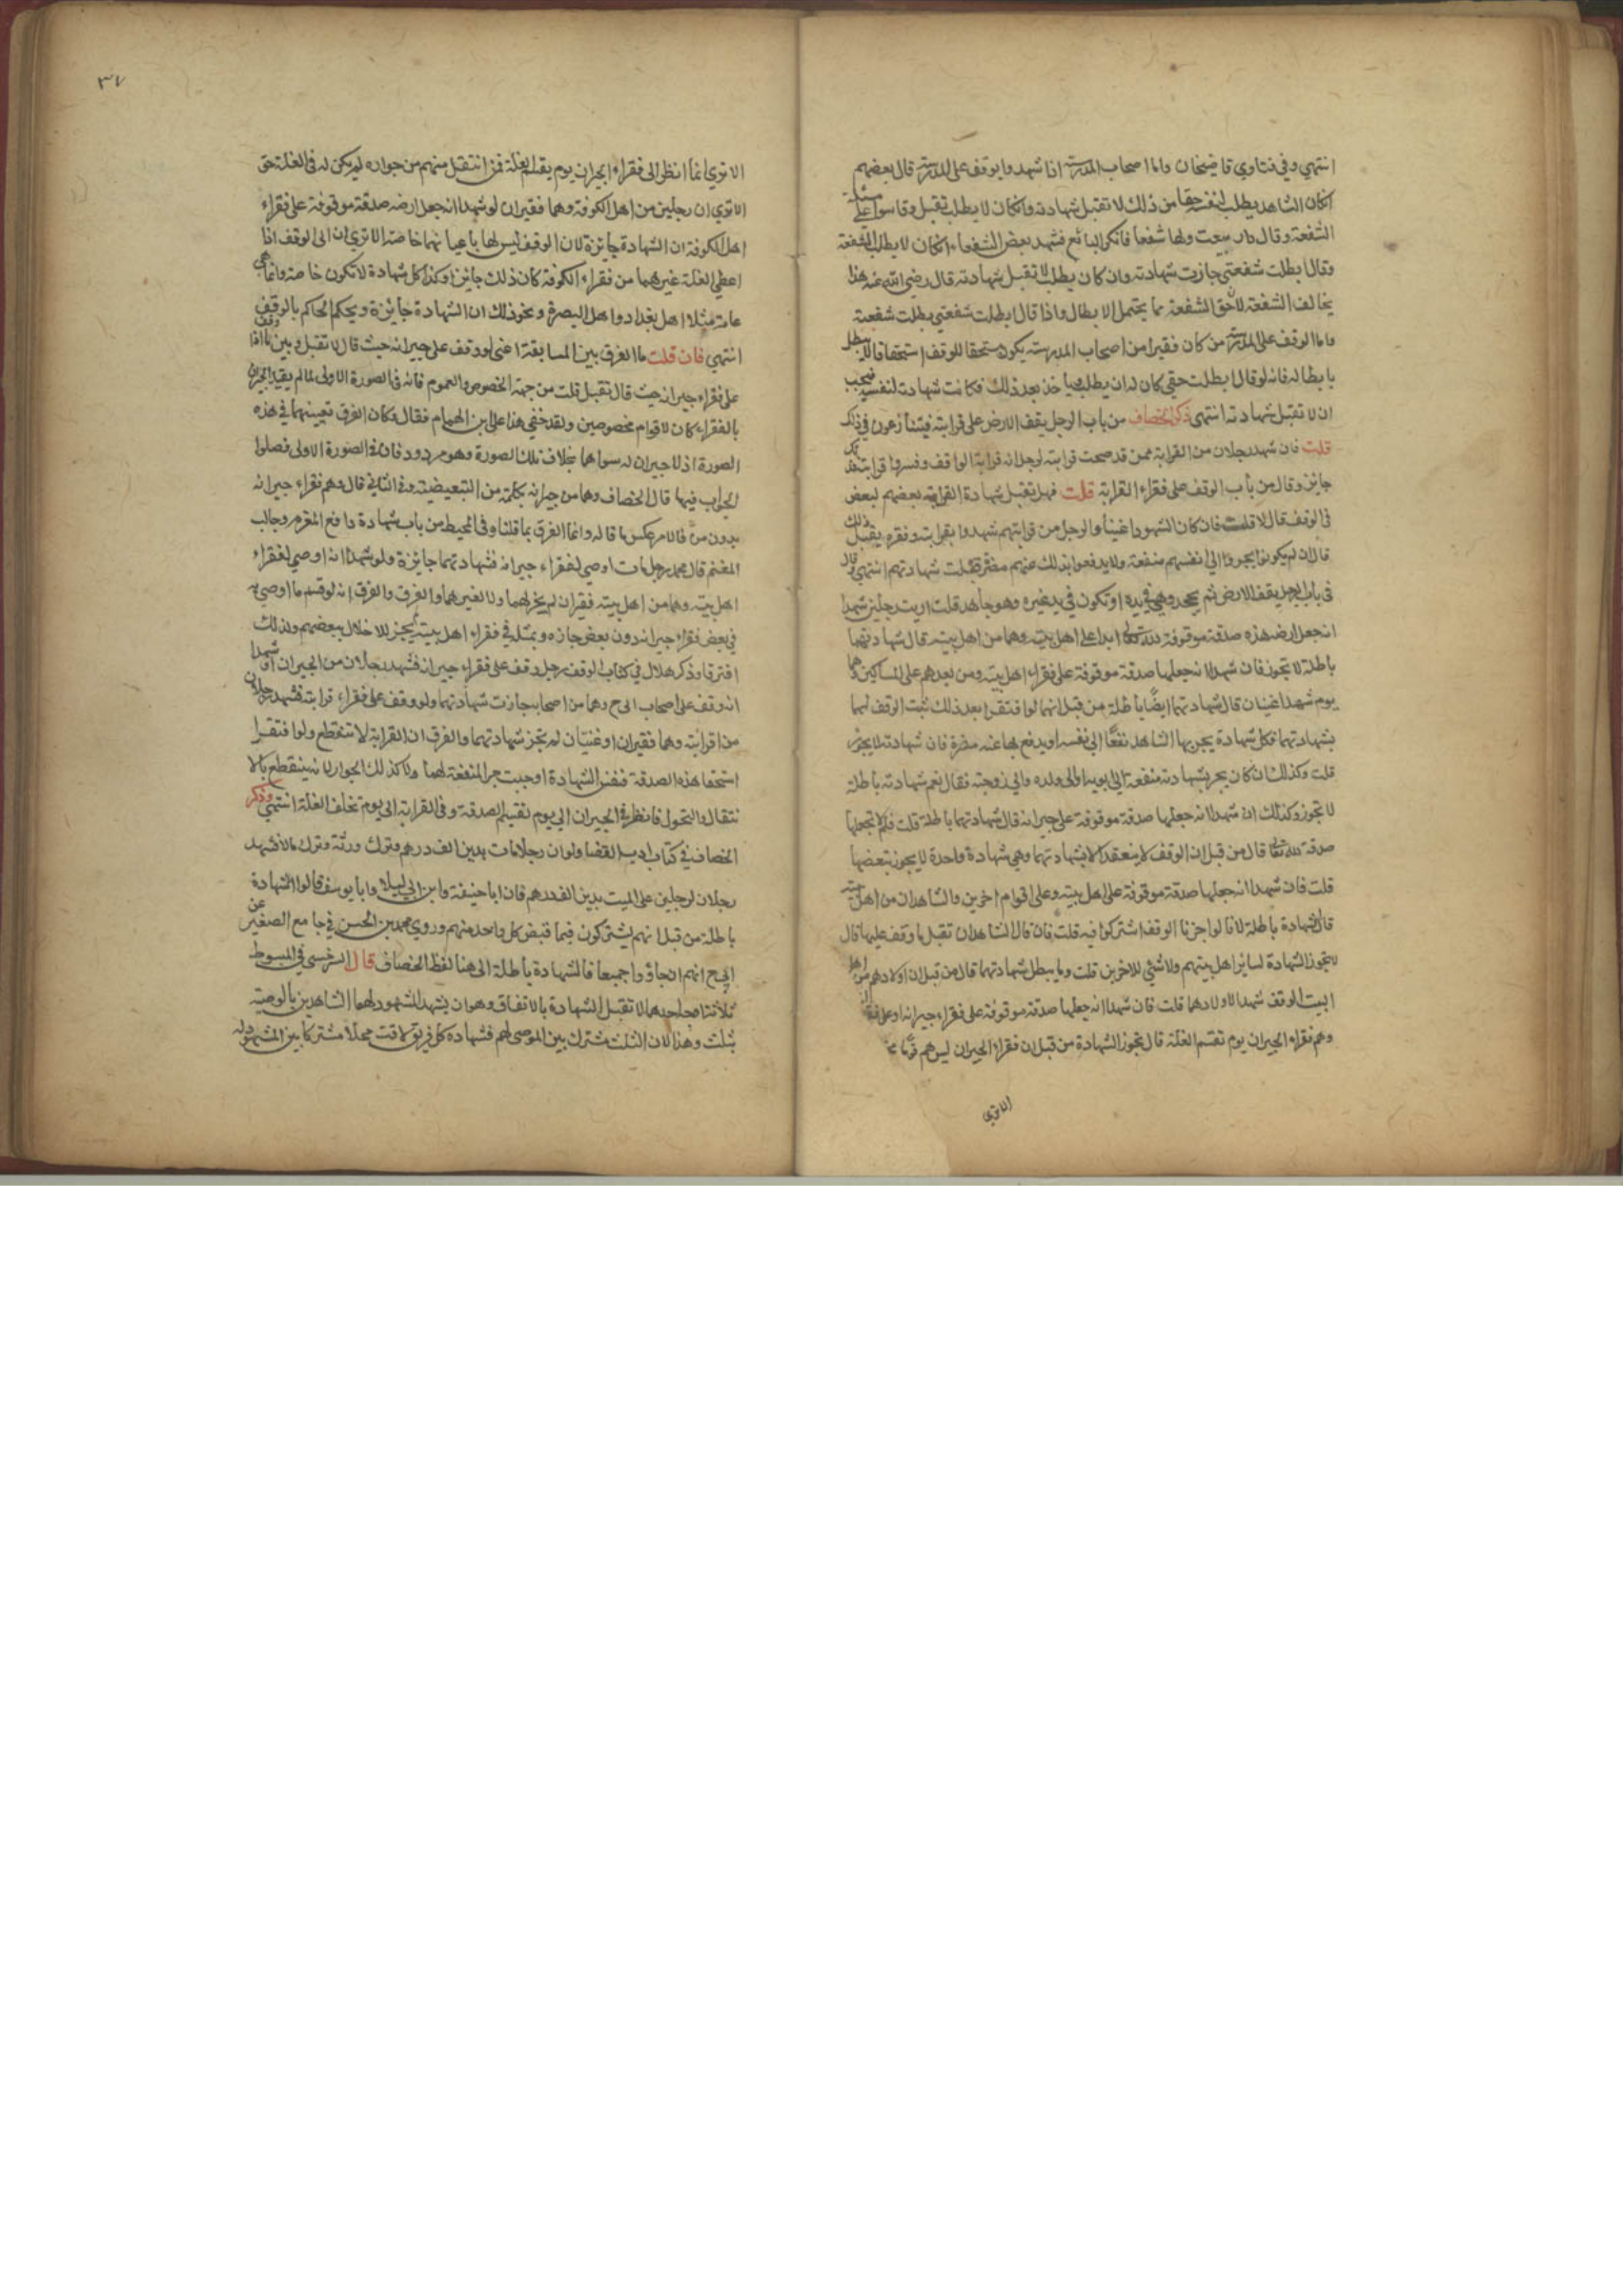 انتهي وفي فتاوي قاضيخان واما اصحاب المدرسة اذا شهدوا بوقف على المدرسة قال بعضهم
انكان الشاهد يطلب لنفسه حقا من ذلك لا تقبل شهادته وانكان لا يطلب تقبل وقاسوا على مسئلة
الشفعة وقال دار بيعت ولها شفعا فانكر البائع فشهد بعض الشفعاء انكان لا يطلب الشفعة
وقال ابطلت شفعتي جازت شهادته وان كان يطلب لا تقبل شهادته قال رضي الله عنه هذا
يخالف الشفعة لان حق الشفعة مما يحتمل الابطال واذا قال ابطلت شفعتي بطلت شفعته
واما الوقف على المدرسة من كان فقيرا من اصحاب المدرسة يكون مستحقا للوقف استحقاقا لا يبطل
بابطاله فانه لو قال ابطلت حقي كان له ان يطلب وياخذ بعد ذلك فكانت شهادته لنفسه فيجب
ان لا تقبل شهادته انتهى ذكر الخصاف من باب الرجل يقف الارض على قرابته فيتنازعون في ذلك
قلت فان شهد رجلان من القرابة ممن قد صحت قرابته لرجل انه قرابة الواقف وفسروا قرابته فذلك
جايز وقال من باب الوقف على فقراء القرابة قلت فهل تقبل شهادة القرابة بعضهم لبعض
في الوقف قال لا قلت فان كان الشهود اغنيا والرجل من قرابتهم شهدوا بقرابته وفقره يقبل ذلك
قال ان لم يكونوا يجروا الي انفسهم منفعة ولا يدفعوا بذلك عنهم مضرة قبلت شهادتهم انتهي وقال
في باب الرجل يقف الارض ثم يجحد وهي في يده او تكون في يد غيره وهو جاحد قلت اريت رجلين شهدا
انه جعل ارضه هذه صدقة موقوفة لله تعالى ابدا على اهل بيته وهما من اهل بيته قال شهادتهما
باطلة لا تجوز فان شهدا انه جعلها صدقة موقوفة على فقراء اهل بيته ومن بعدهم على المساكين وهما
يوم شهدا غنيان قال شهادتهما ايضًا باطلة من قبل انهما لو افتقرا بعد ذلك ثبت الوقف لهما
بشهادتهما فكل شهادة يجر بها الشاهد نفعًا الي نفسه او يدفع بها عنه مضرة فان شهادته لا تجوز
قلت وكذلك ان كان يجر بشهادته منفعة الي ابويه او الى ولده والي زوجته فقال نعم شهادته باطلة
لا تجوز وكذلك ان شهدا انه جعلها صدقة موقوفة على جيرانه قال شهادتهما باطلة قلت فلم لا تجعلها
صدقة لله تعالى قال من قبل ان الوقف لا ينعقد الا بشهادتهما وهي شهادة واحدة لا يجوز بعضها
قلت فان شهدا انه جعلها صدقة موقوفة على اهل بيته وعلى اقوام اخرين والشاهدان من اهل بيته
قال الشهادة باطلة لانا لو اجزنا الوقف اشتركوا فيه قلت فان قال الشاهدان تقبل ما وقف عليها قال
لا تجوز الشهادة لسائر اهل بيتهم ولا شئي للاخرين قلت ولم يبطل شهادتهما قال من قبل ان اولادهم من اهل
البيت الوقف شهدا لاولادهما قلت فان شهدا انه جعلها صدقة موقوفة على فقراء جيرانه
وهم فقراء الجيران يوم تقسم الغلة قال تجوز الشهادة من قبل ان فقراء الجيران ليس هم قومًا
الا ترى
٣٧
الا تري انما انظر الى فقراء الجيران يوم يقسم الغلة فمن انتقل منهم من جواره لم يكن له في الغلة حق
الا تري ان رجلين من اهل الكوفة وهما فقيران لو شهدا انه جعل ارضه صدقة موقوفة على فقراء
اهل الكوفة ان الشهادة جايزة لان الوقف ليس لها باعيانهما خاصة الا تري ان الى الوقف اذا
اعطي الغلة غيرهما من فقراء الكوفة كان ذلك جايزا وكذا كل شهادة لا تكون خاصة وانما هي
عامة مثل اهل بغداد واهل البصرة ونحو ذلك ان الشهادة جائزة ويحكم الحاكم بالوقف
انتهي فان قلت ما الفرق بين المسابقة اعني لو وقف على جيرانه حيث قال لا تقبل وبين ما اذا وقف
على فقراء جيرانه حيث قال تقبل قلت من جهة الخصوص والعموم فانه في الصورة الاولى لما لم يقيد الجيران
بالفقراء كان لاقوام مخصوصين ولقد خفي هذا على ابن الهمام فقال وكان الفرق تعيينهما في هذه
الصورة اذ لا جيران له سواهما بخلاف تلك الصورة وهو مردود فان في الصورة الاولى فصلوا
الجواب فيها قال الخصاف وهما من جيرانه بكلمة من التبعيضية وفي الثاني قال وهم فقراء جيرانه
بدون من فالامر عكس ما قاله وانما الفرق بما قلنا وفي المحيط من باب شهادة دافع المغرم وجالب
المغنم قال محمد رجل مات اوصي لفقراء جيرانه فشهادتهما جايزة ولو شهدا انه اوصي لفقراء
اهل بيته وهما من اهل بيته فقيران لم يجز لهما ولا لغيرهما والفرق انه لو قسم ما اوصي به
في بعض فقراء جيرانه دون بعض جاز وبمثله في فقراء اهل بيته لم يجز للاخلال ببعضهم ولذلك
افترقا وذكر هلال في كتاب الوقف رجل وقف على فقراء جيرانه فشهد رجلان من الجيران او شهدا
انه وقف على اصحاب ابي ح وهما من اصحابه جازت شهادتهما ولو وقف على فقراء قرابته فشهد رجلان
من اقرابته وهما فقيران او غنيان لم تجز شهادتهما والفرق ان القرابة لا تنقطع ولو افتقرا
استحقا هذه الصدقة فنفس الشهادة اوجبت جر المنفعة لهما ولا كذلك الجوار لانه ينقطع بالا
نتقال والتحول فانظر في الجيران الي يوم تقسيم الصدقة وفي القرابة الى يوم تخلف الغلة انتهي وذكر
الخصاف في كتاب ادب القضا ولو ان رجلا مات بدين الف درهم وترك ورثة وترك مالا فشهد
رجلان لرجلين على الميت بدين الف درهم فان ابا حنيفة وابن ابي ليلا وابا يوسف قالوا الشهادة
باطلة من قبل انهم يشتركون فيما قبض كل واحد منهم وروي محمد بن الحسن في جامع الصغير عن
ابي ح انهم ان جاؤا جميعا فالشهادة باطلة الى هنا لفظ الخصاف قال السرخسي في المبسوط
ثلاثة احدها لا تقبل الشهادة بالاتفاق وهو ان يشهد المشهود لهما الشاهدين بالوصية
بثلث وهذا لان الثلث مشترك بين الموصى لهم فشهادة كل فريق لاقت محلا مشتركا بين المشهود له